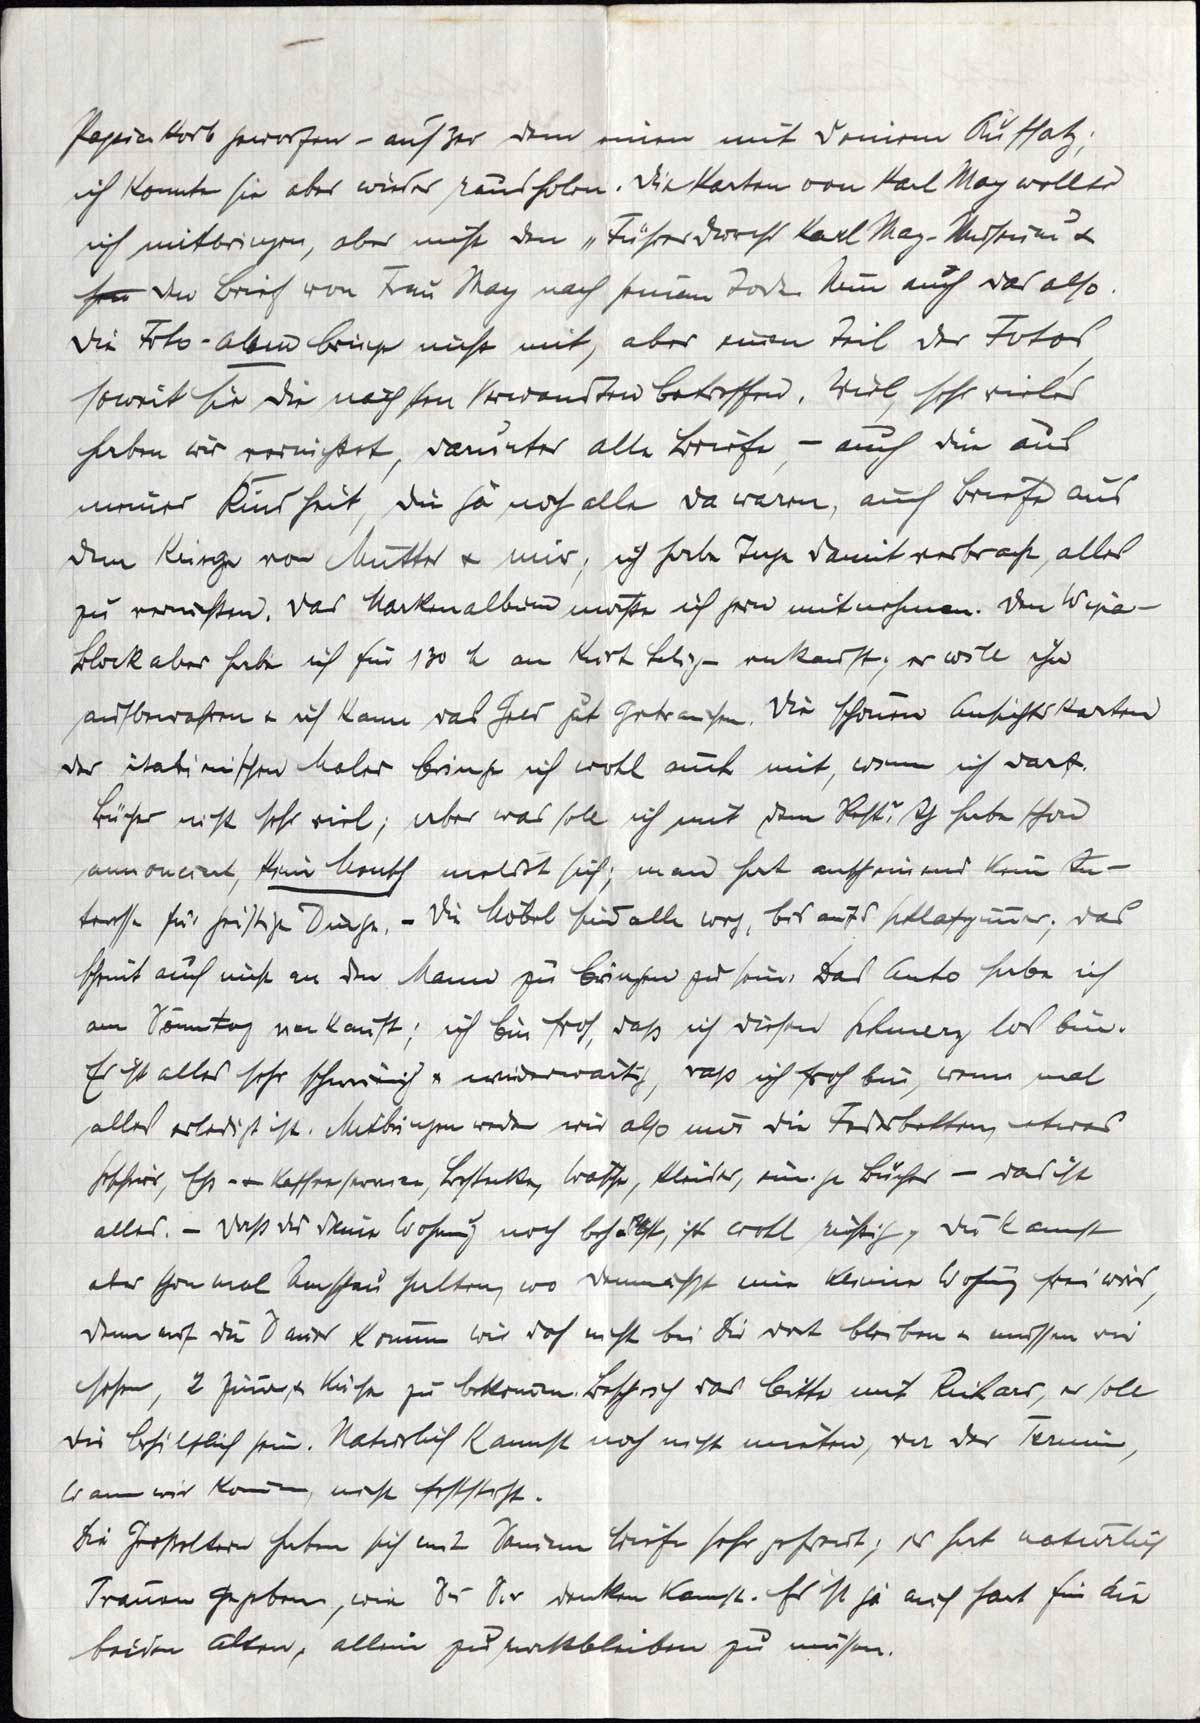 Papierkorb geworfen – außer dem einen mit Deinem Aufsatz;
ich konnte sie aber wieder rausholen. Die Karten von Karl May wollte
ich mitbringen, aber nicht den „Führer durchs Karl May-Museum &
den Brief von Frau May nach seinem Tode. Nun auch das also.
Die Foto-alben bringe nicht mit, aber einen Teil der Fotos,
soweit sie die nächsten Verwandten betreffen. Viel, sehr vieles
haben wir vernichtet, darunter alle Briefe, – auch die aus
meiner Kindheit, die ja noch alle da waren, auch Briefe aus
dem Kriege von Mutter & mir; ich habe Tage damit verbracht, alles
zu vernichten. Das Markenalbum möchte ich gern mitnehmen. Den Wipa-
Block aber habe ich für 130 an Kurt verkauft; er will ihn
aufbewahren & ich kann das Geld gut gebrauchen. Die schönen Ansichtskarten
der italienischen Maler bringe ich wohl auch mit, wenn ich darf.
Bücher nicht sehr viel; aber was soll ich mit dem Rest? Ich habe schon
annonciert, kein Mensch meldet sich; man hat anscheinend kein In-
teresse für geistige Dinge. – Die Möbel sind alle weg, bis aufs Schlafzimmer; das
scheint auch nicht an den Mann zu bringen zu sein. Das Auto habe ich
am Sonntag verkauft; ich bin froh, daß ich diesen Schmerz los bin.
Es ist alles sehr schwierig & widerwärtig, daß ich froh bin, wenn mal
alles erledigt ist. Mitbringen werden wir also nur die Federbetten, etwas
Geschirr, Eß- & Kaffeeservice, Bestecke, Wäsche, Kleider, einige Bücher – das ist
alles. – Daß du deine Wohnung noch behältst, ist wohl richtig, du kannst
aber schon mal Umschau halten, wo demnächst eine kleine Wohng frei wird,
denn auf die Dauer können wir doch nicht bei Dir dort bleiben & müssen
sehen, 2 Zimmer & Küche zu bekommen. Besprich das bitte mit Richard, er soll
dir behilflich sein. Natürlich kannst noch nicht mieten, da der Termin,
wann wir kommen, nicht feststeht.
Die Großeltern haben sich mit Deinem Briefe sehr gefreut; es hat natürlich
Tränen gegeben, wie Du Dir denken kannst. Es ist ja auch hart für die
beiden Alten, allein zurückbleiben zu müssen.